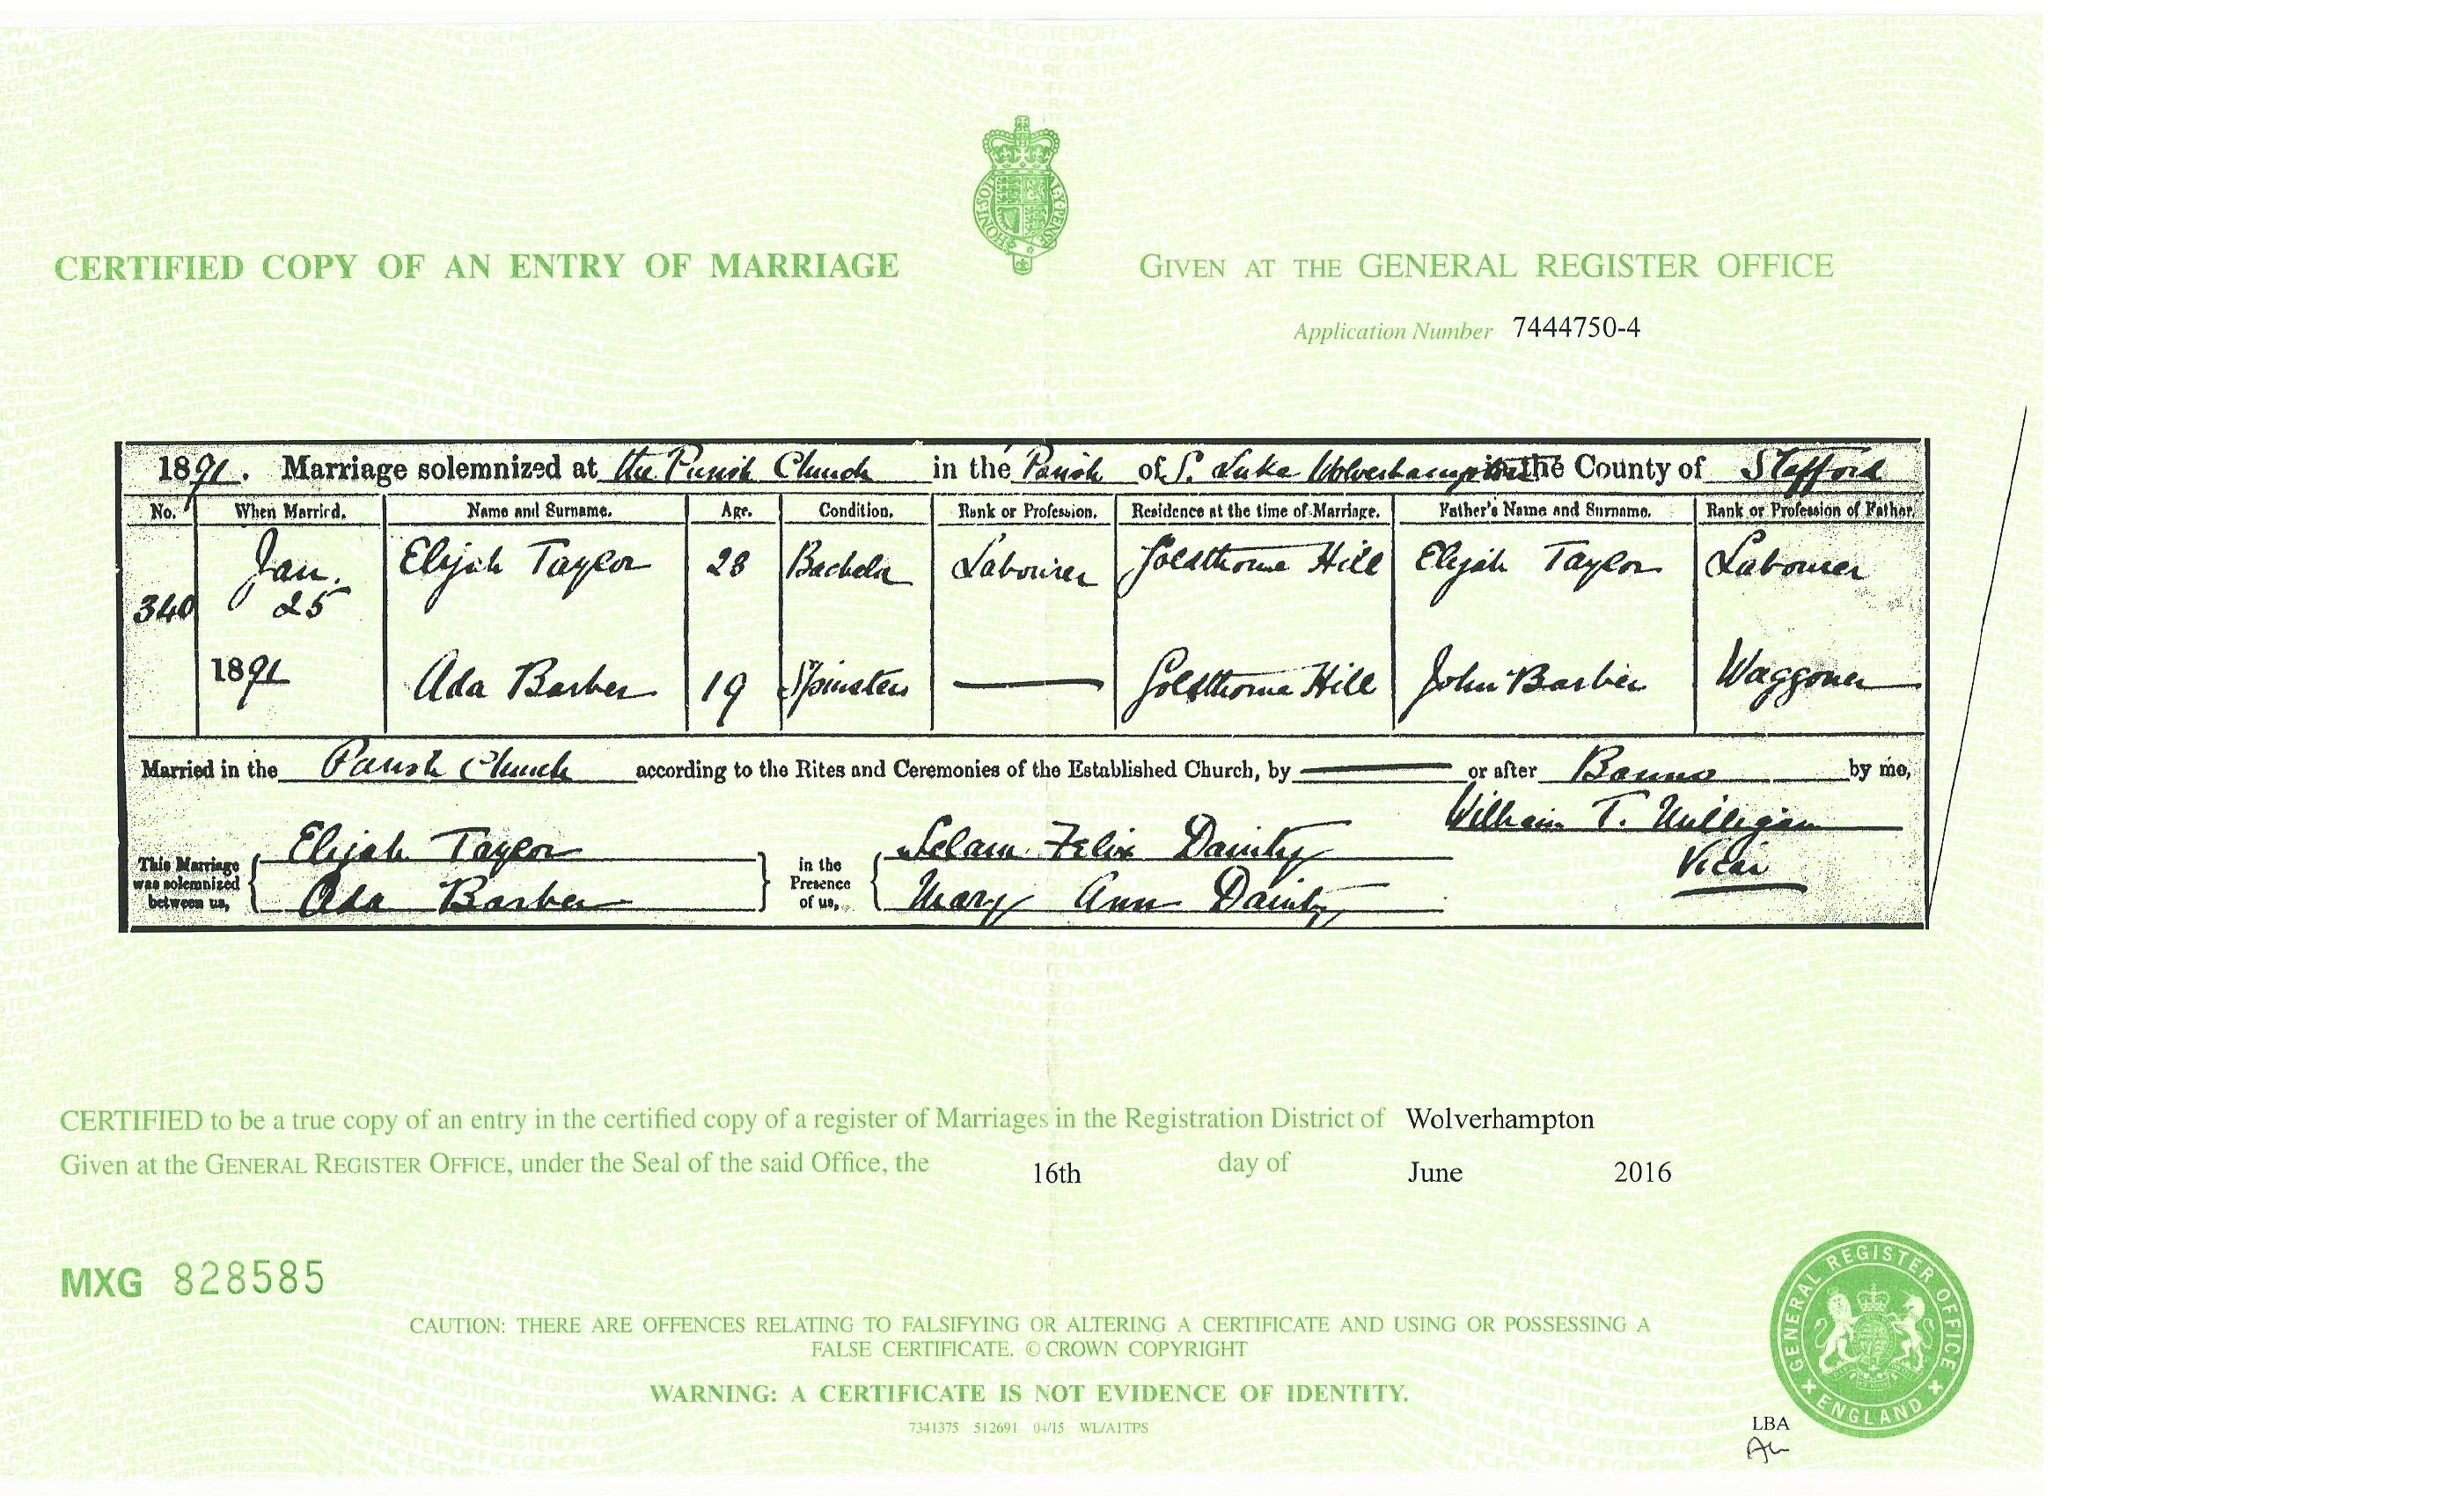 CERTIFIED COPY OF AN ENTRY OF MARRIAGE
GIVEN AT THE GENERAL REGISTER OFFICE
Application Number 7444750-4
1891. Marriage solemnized at the Parish Church in the Parish of S. Luke Wolverhampton in the County of Stafford
No. When Married. Name and Surname. Age. Condition. Rank or Profession. Residence at the time of Marriage. Father's Name and Surname. Rank or Profession of Father.
340 Jan. 25 Elijah Taylor 28 Bachelor Labourer Goldthorne Hill Elijah Taylor Labourer
1891 Ada Barber 19 Spinster Goldthorne Hill John Barber Waggoner
Married in the Parish Church according to the Rites and Ceremonies of the Established Church, by or after Banns by me,
William T. Milligan
Vicar
This Marriage was solemnized between us,
Elijah Taylor
Ada Barber
in the Presence of us,
Felix Dainty
Mary Ann Dainty
CERTIFIED to be a true copy of an entry in the certified copy of a register of Marriages in the Registration District of Wolverhampton
Given at the GENERAL REGISTER OFFICE, under the Seal of the said Office, the 16th day of June 2016
MXG 828585
CAUTION: THERE ARE OFFENCES RELATING TO FALSIFYING OR ALTERING A CERTIFICATE AND USING OR POSSESSING A
FALSE CERTIFICATE. © CROWN COPYRIGHT
WARNING: A CERTIFICATE IS NOT EVIDENCE OF IDENTITY.
7341375 512691 04/15 WL/A1TPS
GENERAL REGISTER OFFICE
ENGLAND
LBA